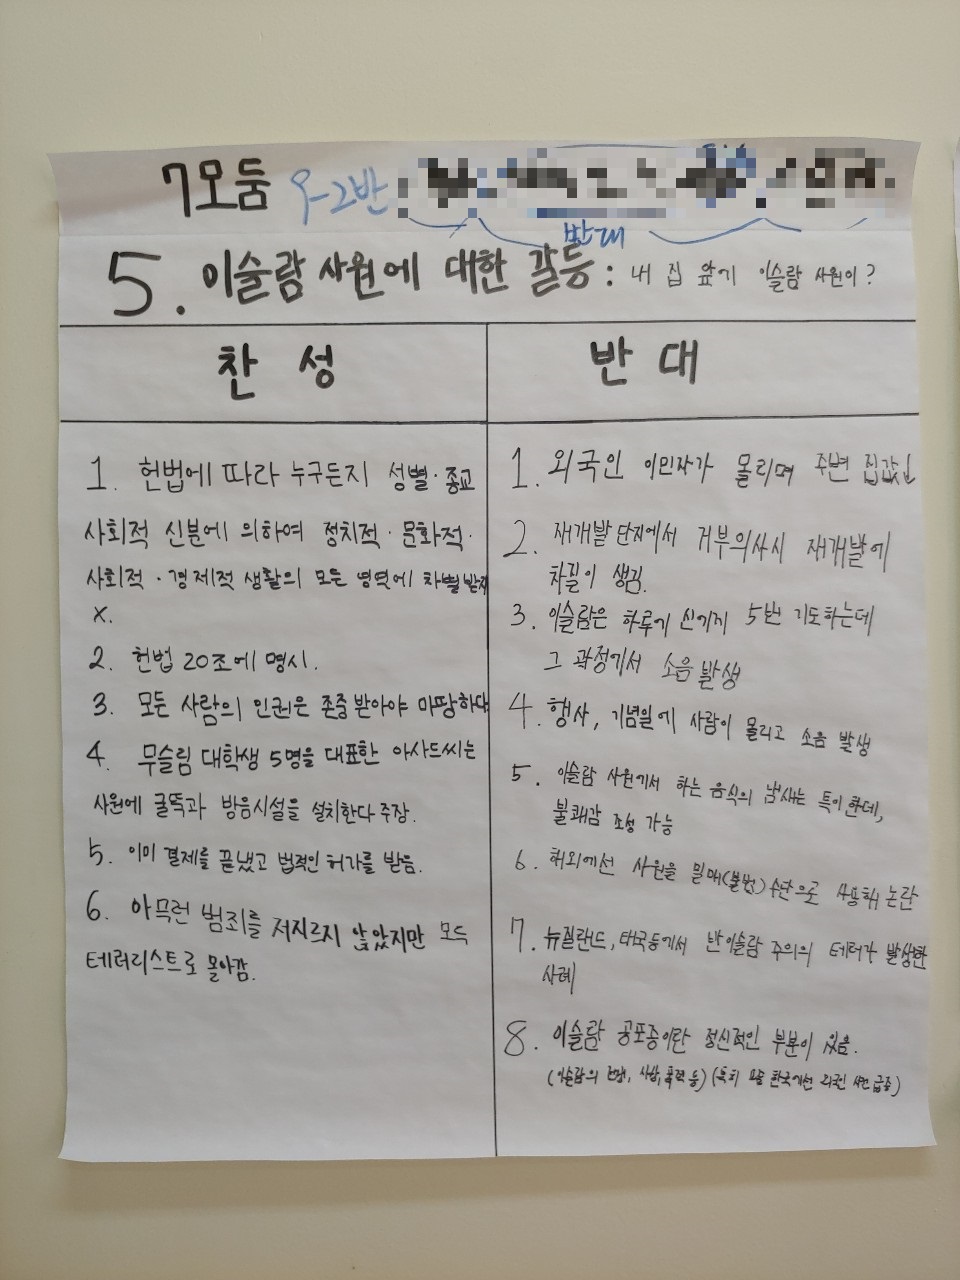 7모둠 9-2반
반대
5. 이슬람 사원에 대한 갈등 : 내 집 앞에 이슬람 사원이?
찬성
1. 헌법에 따라 누구든지 성별·종교
사회적 신분에 의하여 정치적·문화적·
사회적·경제적 생활의 모든 영역에 차별받지
X.
2. 헌법 20조에 명시.
3. 모든 사람의 인권은 존중받아야 마땅하다
4. 무슬림 대학생 5명을 대표한 아사드씨는
사원에 굴뚝과 방음시설을 설치한다 주장.
5. 이미 결제를 끝냈고 법적인 허가를 받음.
6. 아무런 범죄를 저지르지 않았지만 모두
테러리스트로 몰아감.
반대
1. 외국인 이민자가 몰리며 주변 집값↓
2. 재개발 단지에서 거부의사시 재개발에
차질이 생김.
3. 이슬람은 하루에 5번 기도하는데
그 과정에서 소음발생
4. 행사, 기념일에 사람이 몰리고 소음 발생
5. 이슬람 사원에서 하는 음식의 냄새는 특이한데,
불쾌감 조성 가능
6. 해외에선 사원을 밀매(불법)수단으로 사용해 논란
7. 뉴질랜드, 태국등에서 반이슬람 주의의 테러가 발생한
사례
8. 이슬람 공포증이란 정신적인 부분이 있음.
(이슬람의 사상, 폭력 등) 한국에선 외국인 급증)